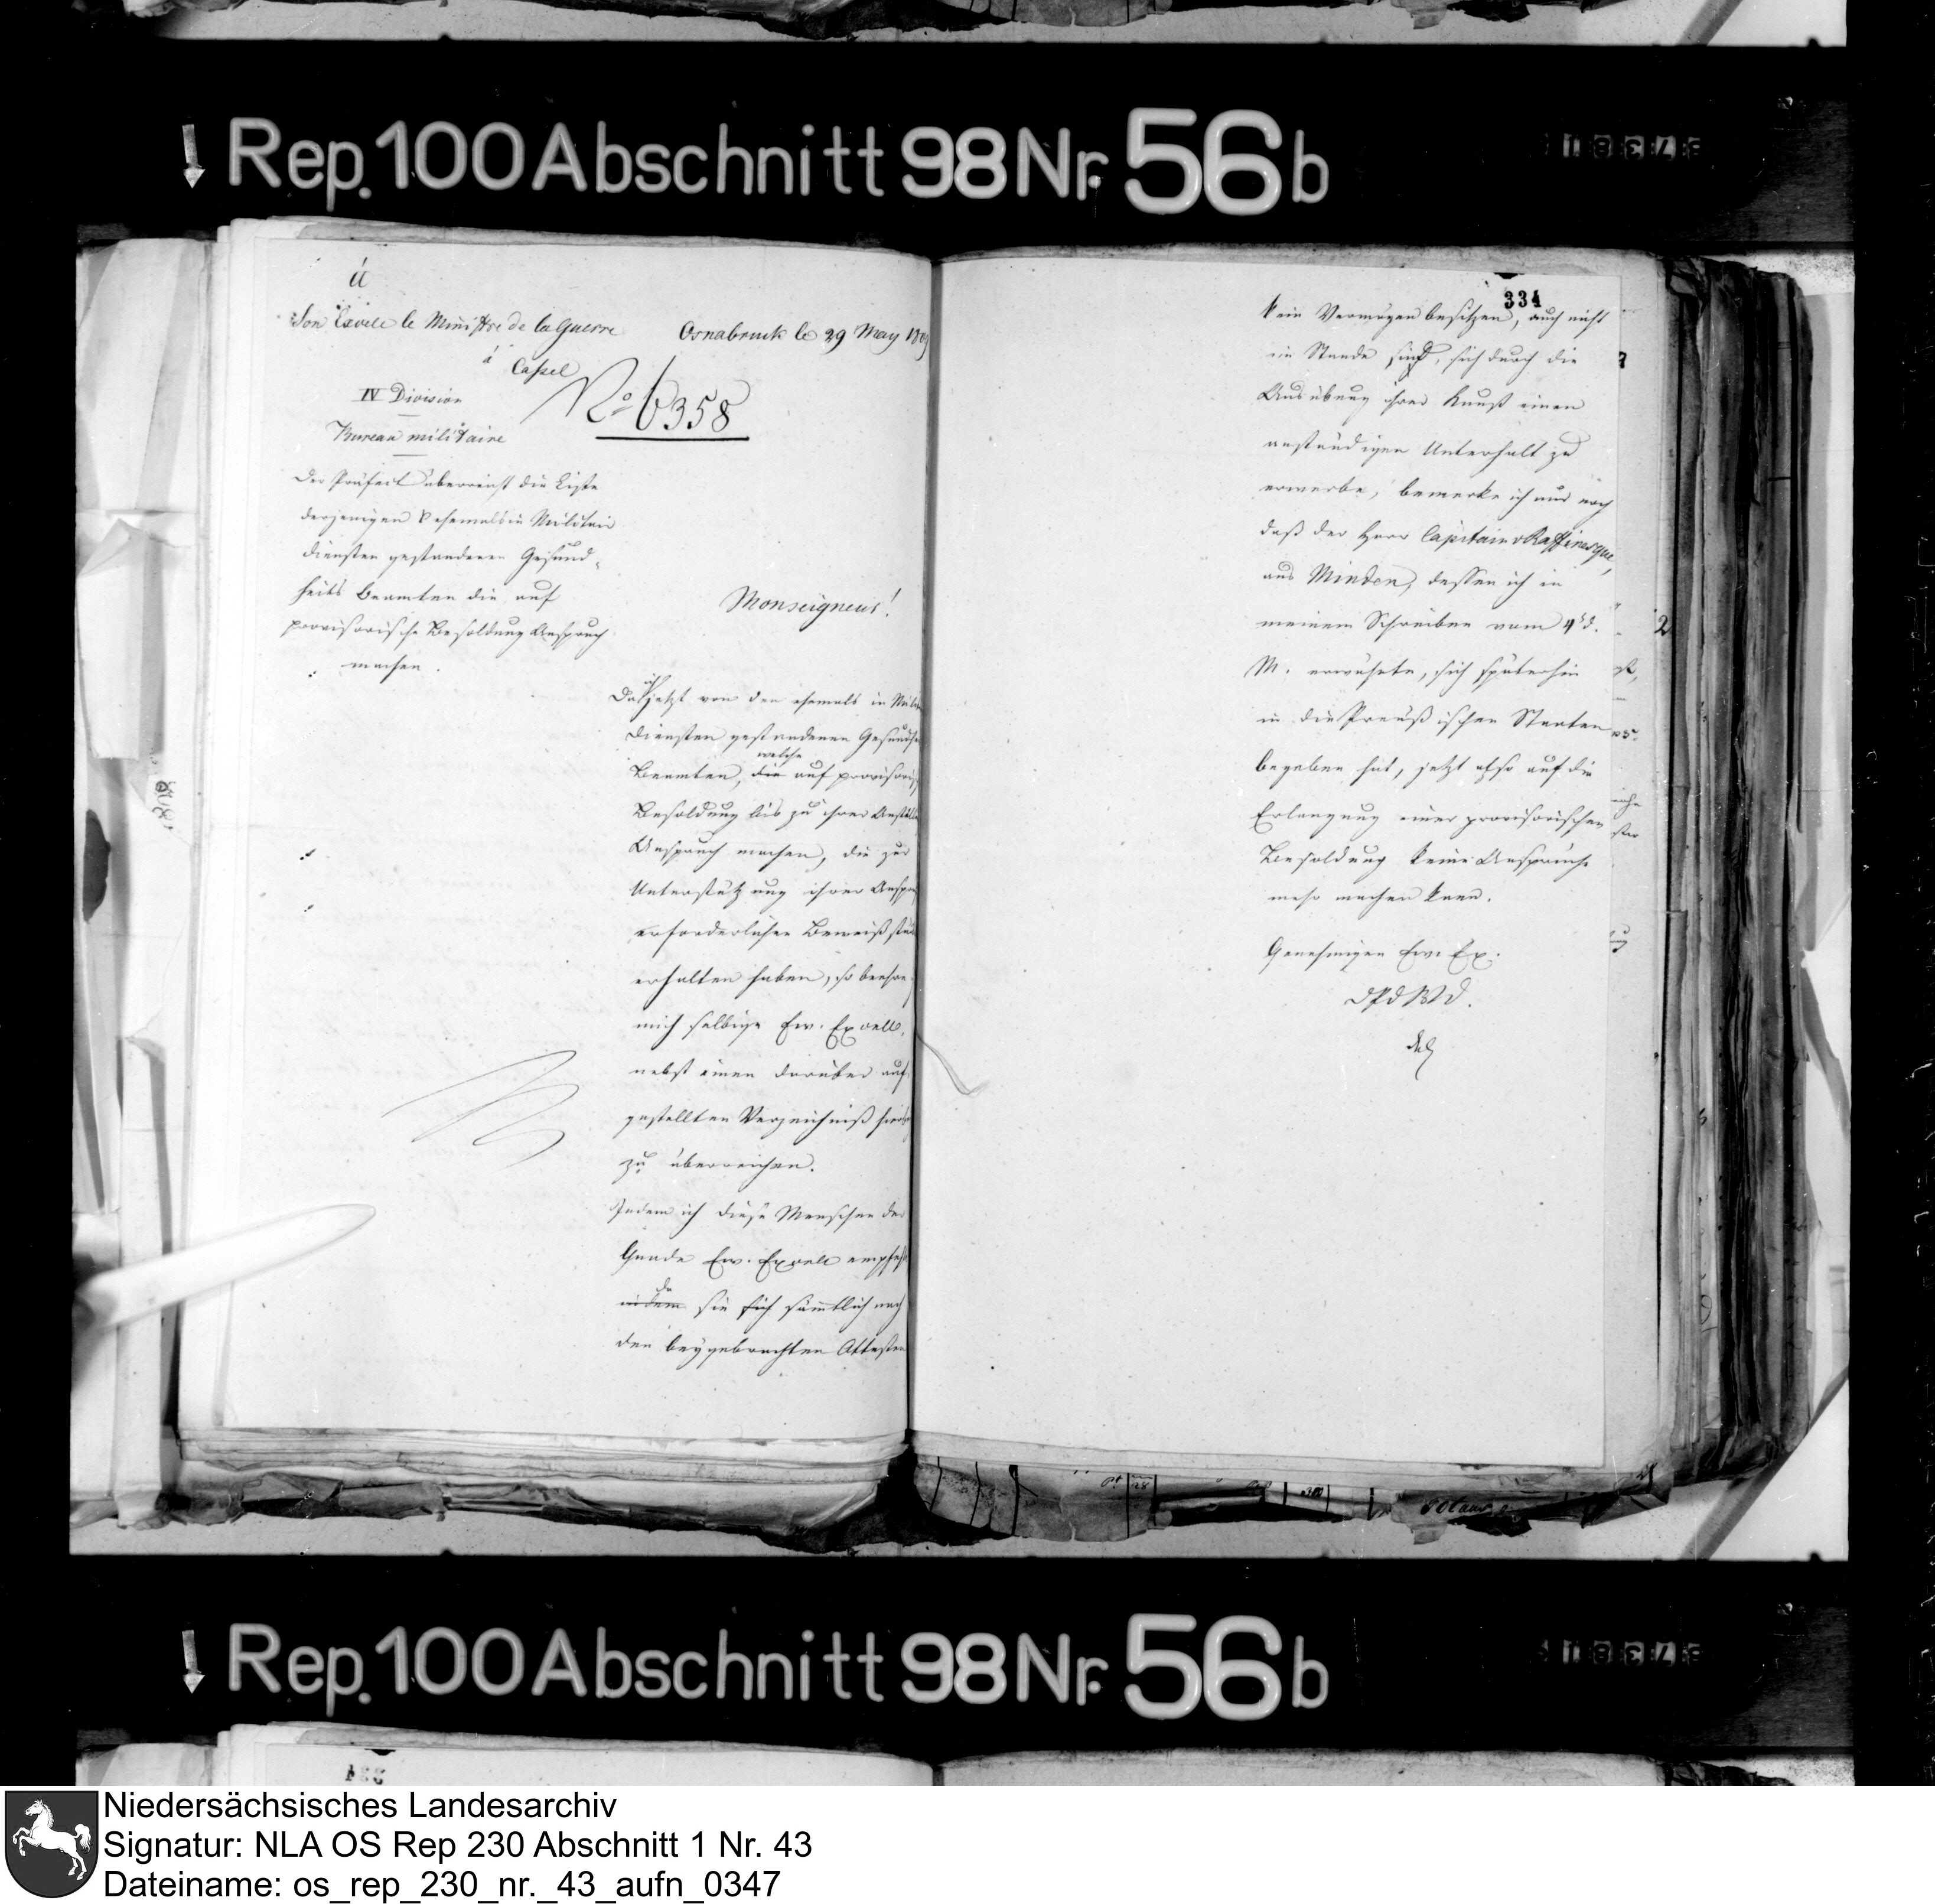 Rep. 100 Abschnitt 98 Nr. 56b
à
Son Excell le Ministre de la Guerre
à
Cassel
Osnabruck le 29 May 1809
No 6358
IV Division
Bureau militaire
Der Präfect überreicht die Liste
derjenigen ehemals in Militair
diensten gestandenen Gesund-
heits Beamten die auf
provisorische Besoldung Anspruch
machen.
Monseigneur!
Da ich jetzt von den ehemals in
diensten gestandenen
Beamten, die welche auf
Besoldung bis zu ihrer
Anspruch machen, die zur
Unterstützung ihrer
erforderlichen
erhalten haben, so
mich selbige Ew. Excell.
nebst einen darüber auf
gestellten Verzeichniß
zu überreichen.
Indem ich diese Menschen der
Gnade Ew. Excell
indem da sie sich sämtlich nach
den beygebrachten Attesten
334
kein Vermögen besitzen, auch nicht
im Stande sind, sich durch die
Ausübung ihrer Kunst einen
anständigen Unterhalt zu
erwerbe, bemerke ich nur noch
daß der Herr Capitain v Raffinesque,
aus Minden, dessen ich in
meinem Schreiben vom 4t d.
M. erwähnte, sich späterhin
in die Preußischen Staaten
begeben hat, jetzt also auf die
Erlangung einer provisorischen
Besoldung keine Ansprüche
mehr machen kann.
Genehmigen Ew. Ex.
DPdWD.
2
Rep. 100 Abschnitt 98 Nr. 56b
334
Niedersächsisches Landesarchiv
Signatur: NLA OS Rep 230 Abschnitt 1 Nr. 43
Dateiname: os_rep_230_nr._43_aufn_0347